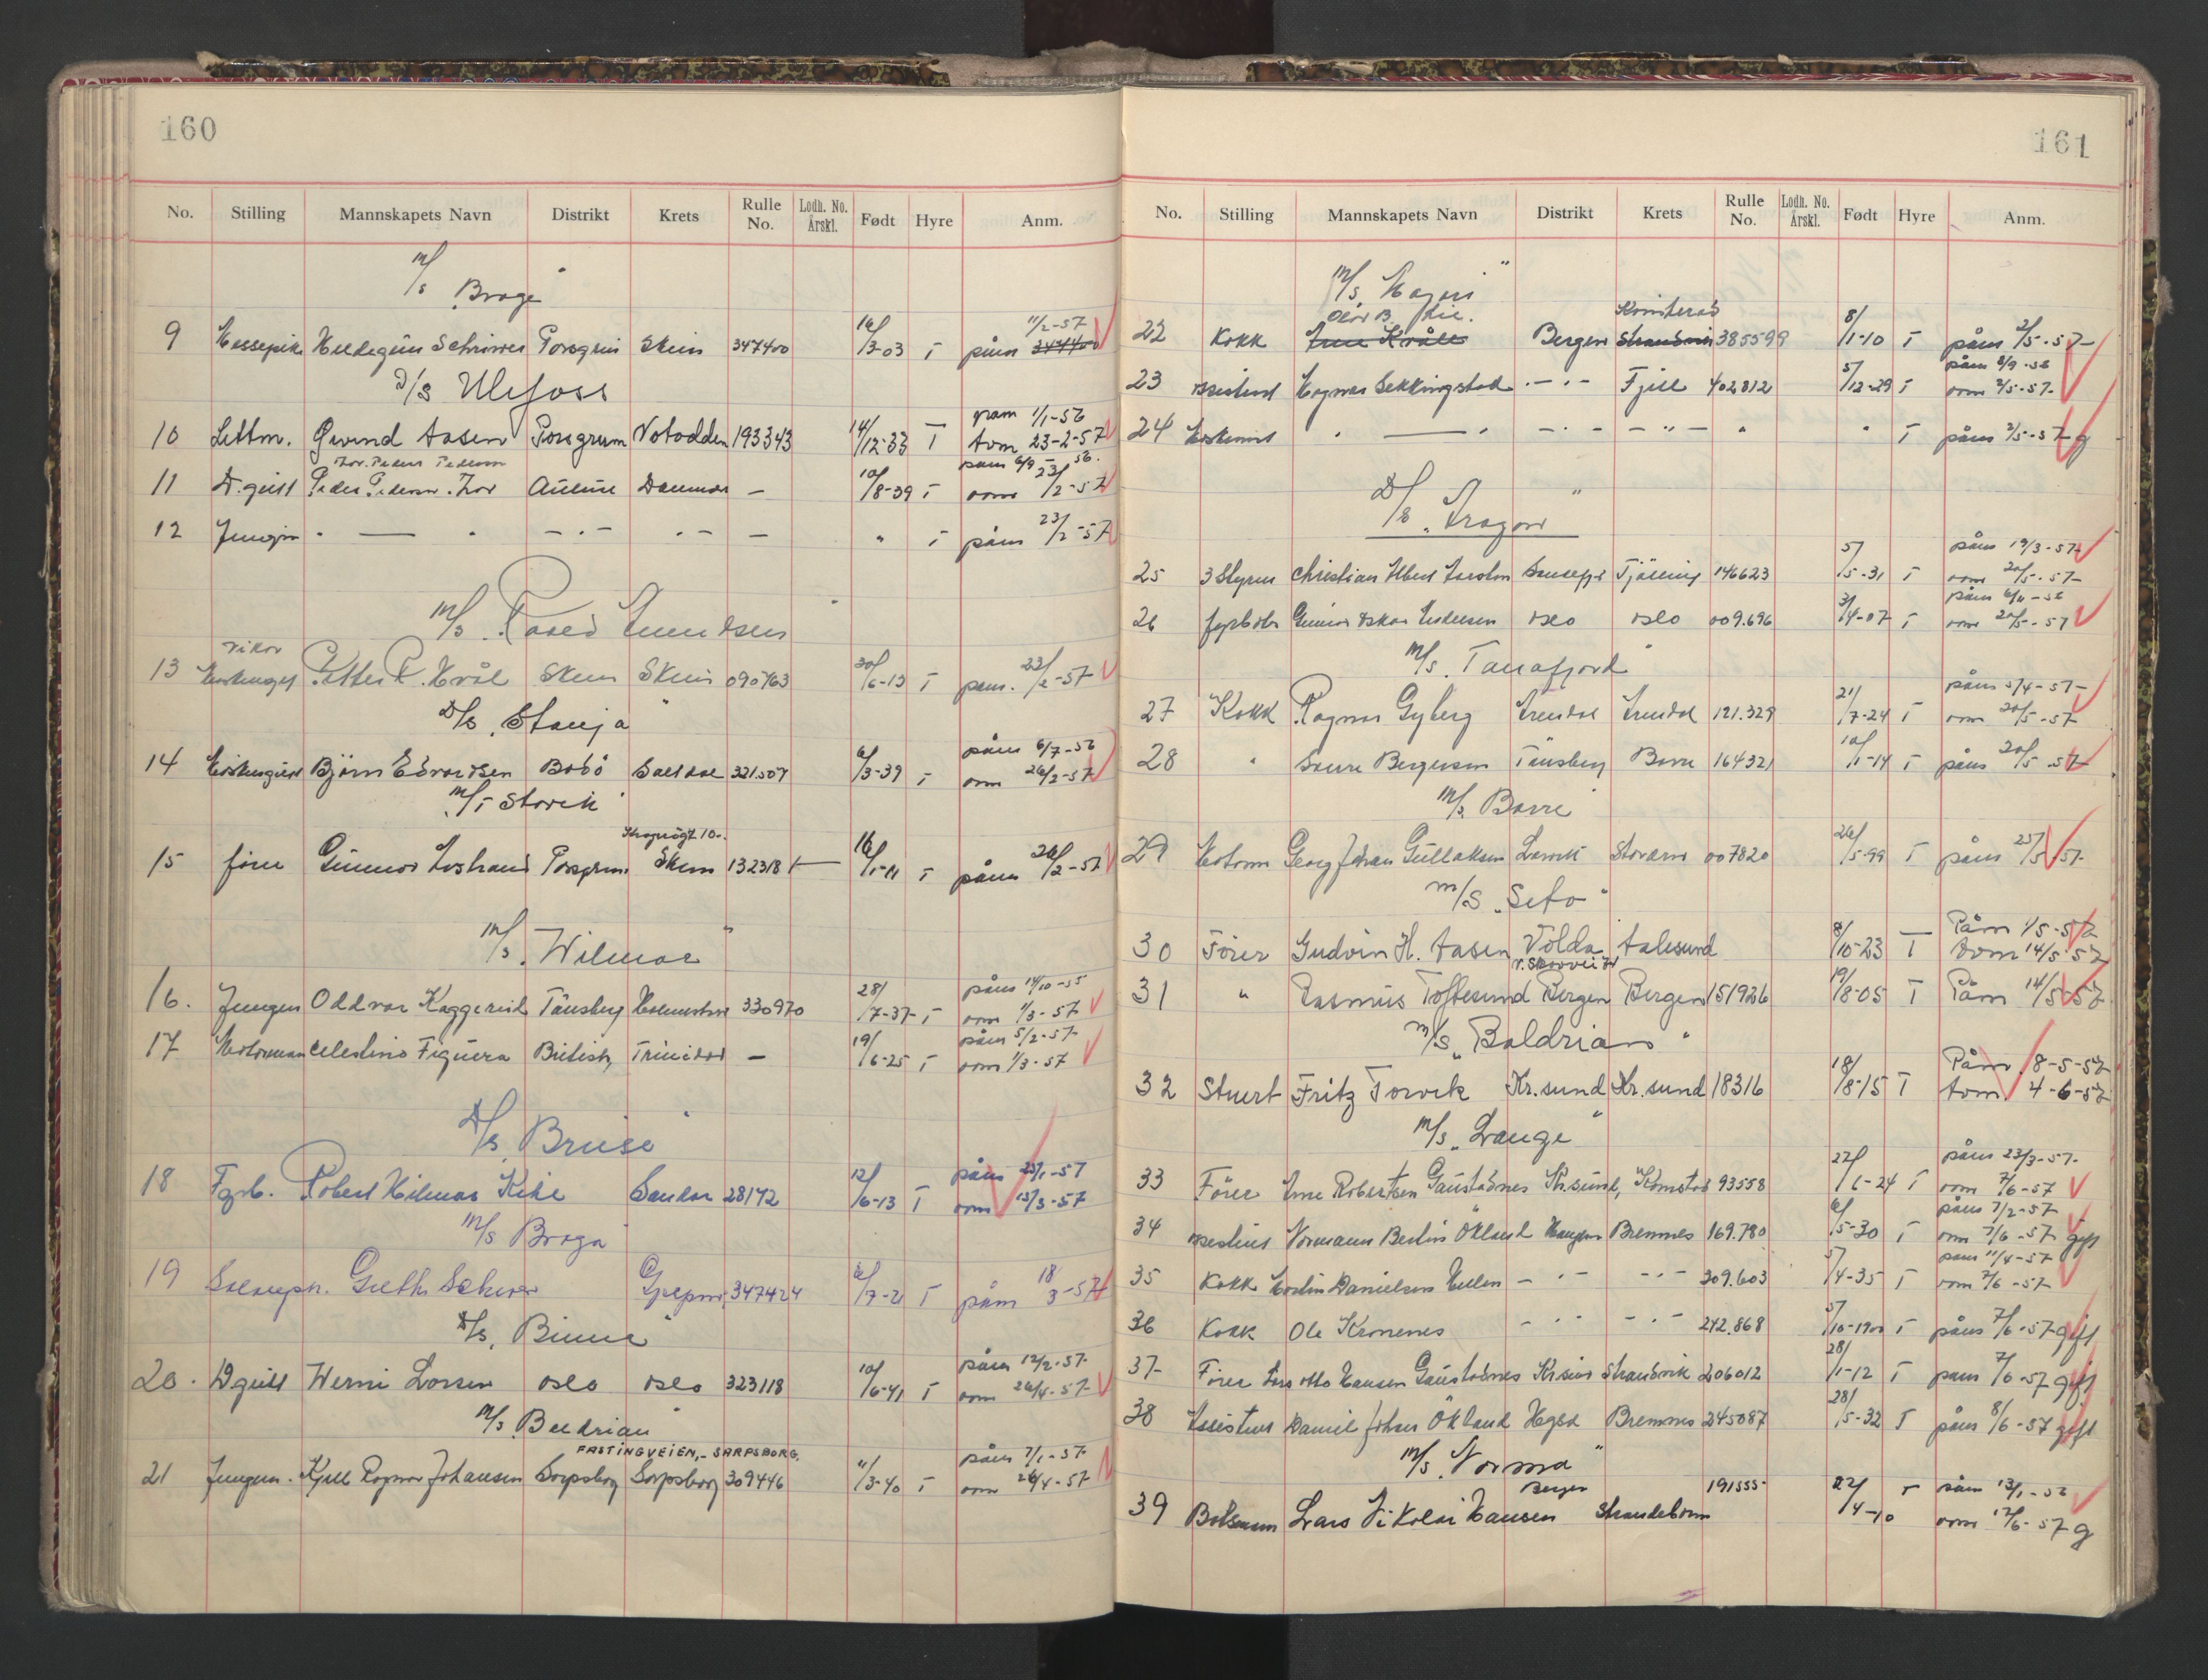 160
No. Stilling Mannskapets Navn Distrikt Krets Rulle No. Lodh. No. Årskl. Født Hyre Anm.
M/S "Brage"
9 Messepike Schriwer Porsgrun Skien 347400 16/3-03 T påm 11/2-57
D/S Ulefoss
10 Lettm. Øivind Aasen Porsgrunn Notodden 193343 14/12-33 T pam 1/1-56 avm 23-2-57
11 D.gutt Peder Pedersen Danmar — 10/8-39 T påm 6/9-56. avm 23/2-57
12 Jungm " — " — " — " — — " T påm 23/2-57
M/S Roald Amundsen
13 Petter R. Kvåle Skien Skien 090763 30/6-13 T påm. 23/2-57
D/S "Stanja"
14 Björn Edvardsen Bodö Saltdal 321507 6/3-39 T påm 6/7-56 avm 26/2-57
M/T Storvik
15 förer Gunnar Porsgrun Skien 132318 16/1-11 T påm 26/2-57
M/S "Wilmar"
16. Jungm Oddvar Kaggerud Tönsberg Holmestran 330970 28/7-37 T påm 14/10-55 avm 1/3-57
17 Motorman Celestino Figuera British Trinidad — 19/6-25 T påm 5/2-57 avm 1/3-57
D/S "Bruse"
18 Fyrb. Robert Hilmar Kihl Sandar 28142 12/6-13 T påm 25/1-57 avm 15/3-57
M/S Braga
19 Greth Gjerpen 347424 6/7-21 T påm 18/3-57
D/S "Binna"
20. Dgutt Werni Larsen Oslo Oslo 323118 10/6-41 T påm 12/2-57 avm 26/4-57
M/S "Baldrian"
FASTINGVEIEN,- SARPSBORG.
21 Jungm. Kjell Ragnar Johansen Sarpsborg Sarpsborg 309446 11/3-40 T påm 7/1-57 avm 26/4-57
161
No. Stilling Mannskapets Navn Distrikt Krets Rulle No. Lodh. No. Årskl. Født Hyre Anm.
M/S "Hagari"
Olav B. Lie.
22 Kokk Arne Kvåle Bergen Strandvik 385599 8/1-10 T påm 2/5-57
23 Assistent Magnar Sekkingstad — " — Fjell 402812 5/12-29 T påm 8/9-56 avm 2/5-57
24 Maskinist " — " — " — — " — " " T påm 2/5-57 g
D/S "Aragon"
25 3 Styrm Christian Albert Larsen Sandefj. Tjölling 146623 5/5-31 T påm 19/3-57 avm 20/5-57
26 fyrböter Gunnar Oskar Andersen Oslo Oslo 009.696 3/4-07 T påm 6/11-56 avm 20/5-57
M/S "Tanafjord"
27 Kokk Ragnar Gyberg Arendal Arendal 121.329 21/7-24 T påm 5/4-57 avm 20/5-57
28 " Sverre Bergersen Tönsberg Borre 164321 10/1-14 T påm 20/5-57
M/S "Borre"
29 Motorm Georg Johan Gullaksen Larvik Stavern 007820 26/5-99 T påm 25/5 57
M/S "Sefo"
30 Förer Gudvin H. Aasen Volda Aalesund 8/10-23 T Påm 1/5-57 Avm 14/5-57
31 " Rasmus Toftesund Bergen Bergen 151926 19/8-05 T Påm 14/5-57
M/S "Baldrian"
32 Stuert Fritz Torvik Kr.sund Kr.sund 18316 18/8-15 T Påm. 8-5-57 Avm. 4-6-57
M/S "Lange"
33 Förer Arne Robertsen Gaustadnes Kr.sund, Kornstad 93558 22/1-24 T påm 23/3-57 avm 7/6-57
34 Assistent Normann Bertin Ökland Haugesu Bremnes 169.780 6/5-30 T påm 7/2-57 avm 7/6-57 gift
35 Kokk Martin Danielsen Hellen — " — — " — 309.603 5/4-35 T påm 11/4-57 avm 7/6-57
36 Kokk Ole Kronenes — " — — " — 242.868 5/10-1900 T påm 7/6-57 gift
37 Förer Lars Otto Hansen Gaustadnes Kr.sund Strandvik 206012 28/1-12 T påm 7/6-57 gift
38 Assistent Daniel Johan Ökland Hgsd Bremnes 245087 28/5-32 T påm 8/6-57 gift
M/S "Norma"
39 Båtsmann Lars Nikolai Hansen Bergen Strandebarm 191555 22/4-10 T påm 13/1-56 avm 12/6-57 g